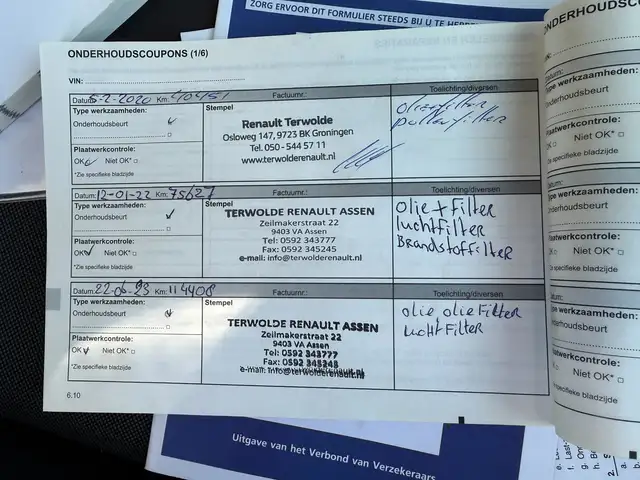 ZORG ERVOOR DIT FORMULIER STEEDS BIJ U TE
ONDERHOUDSCOUPONS (1/6)
VIN:
Datum: 5-2-2020 Km: 40451 Factuurnr.: Toelichting/diversen
Type werkzaamheden:
Onderhoudsbeurt
Plaatwerkcontrole:
OK Niet OK*
*Zie specifieke bladzijde
Stempel
Renault Terwolde
Osloweg 147, 9723 BK Groningen
Tel. 050 - 544 57 11
www.terwolderenault.nl
oliefilter
pollenfilter
Datum: 12-01-22 Km: 75627 Factuurnr.: Toelichting/diversen
Type werkzaamheden:
Onderhoudsbeurt
Plaatwerkcontrole:
OK Niet OK*
*Zie specifieke bladzijde
Stempel
TERWOLDE RENAULT ASSEN
Zeilmakerstraat 22
9403 VA Assen
Tel: 0592 343777
Fax: 0592 345245
e-mail: info@terwolderenault.nl
Olie + Filter
luchtFilter
Brandstoffilter
Datum: 22-06-23 Km: 114408 Factuurnr.: Toelichting/diversen
Type werkzaamheden:
Onderhoudsbeurt
Plaatwerkcontrole:
OK Niet OK*
*Zie specifieke bladzijde
Stempel
TERWOLDE RENAULT ASSEN
Zeilmakerstraat 22
9403 VA Assen
Tel: 0592 343777
Fax: 0592 345245
e-mail: info@terwolderenault.nl
olie, olie Filter
lucht Filter
6.10
ONDERHOUDSC
VIN:
Datum:
Type werkzaamheden:
Onderhoudsbeurt
Plaatwerkcontrole:
Niet OK*
*Zie specifieke bladzijde
Datum:
Type werkzaamheden:
Onderhoudsbeurt
Plaatwerkcontrole:
Niet OK*
specifieke bladzijde
werkzaamheden:
Onderhoudsbeurt
Plaatwerkcontrole:
Niet OK*
specifieke bladzijde
Uitgave van het Verbond van Verzekeraars